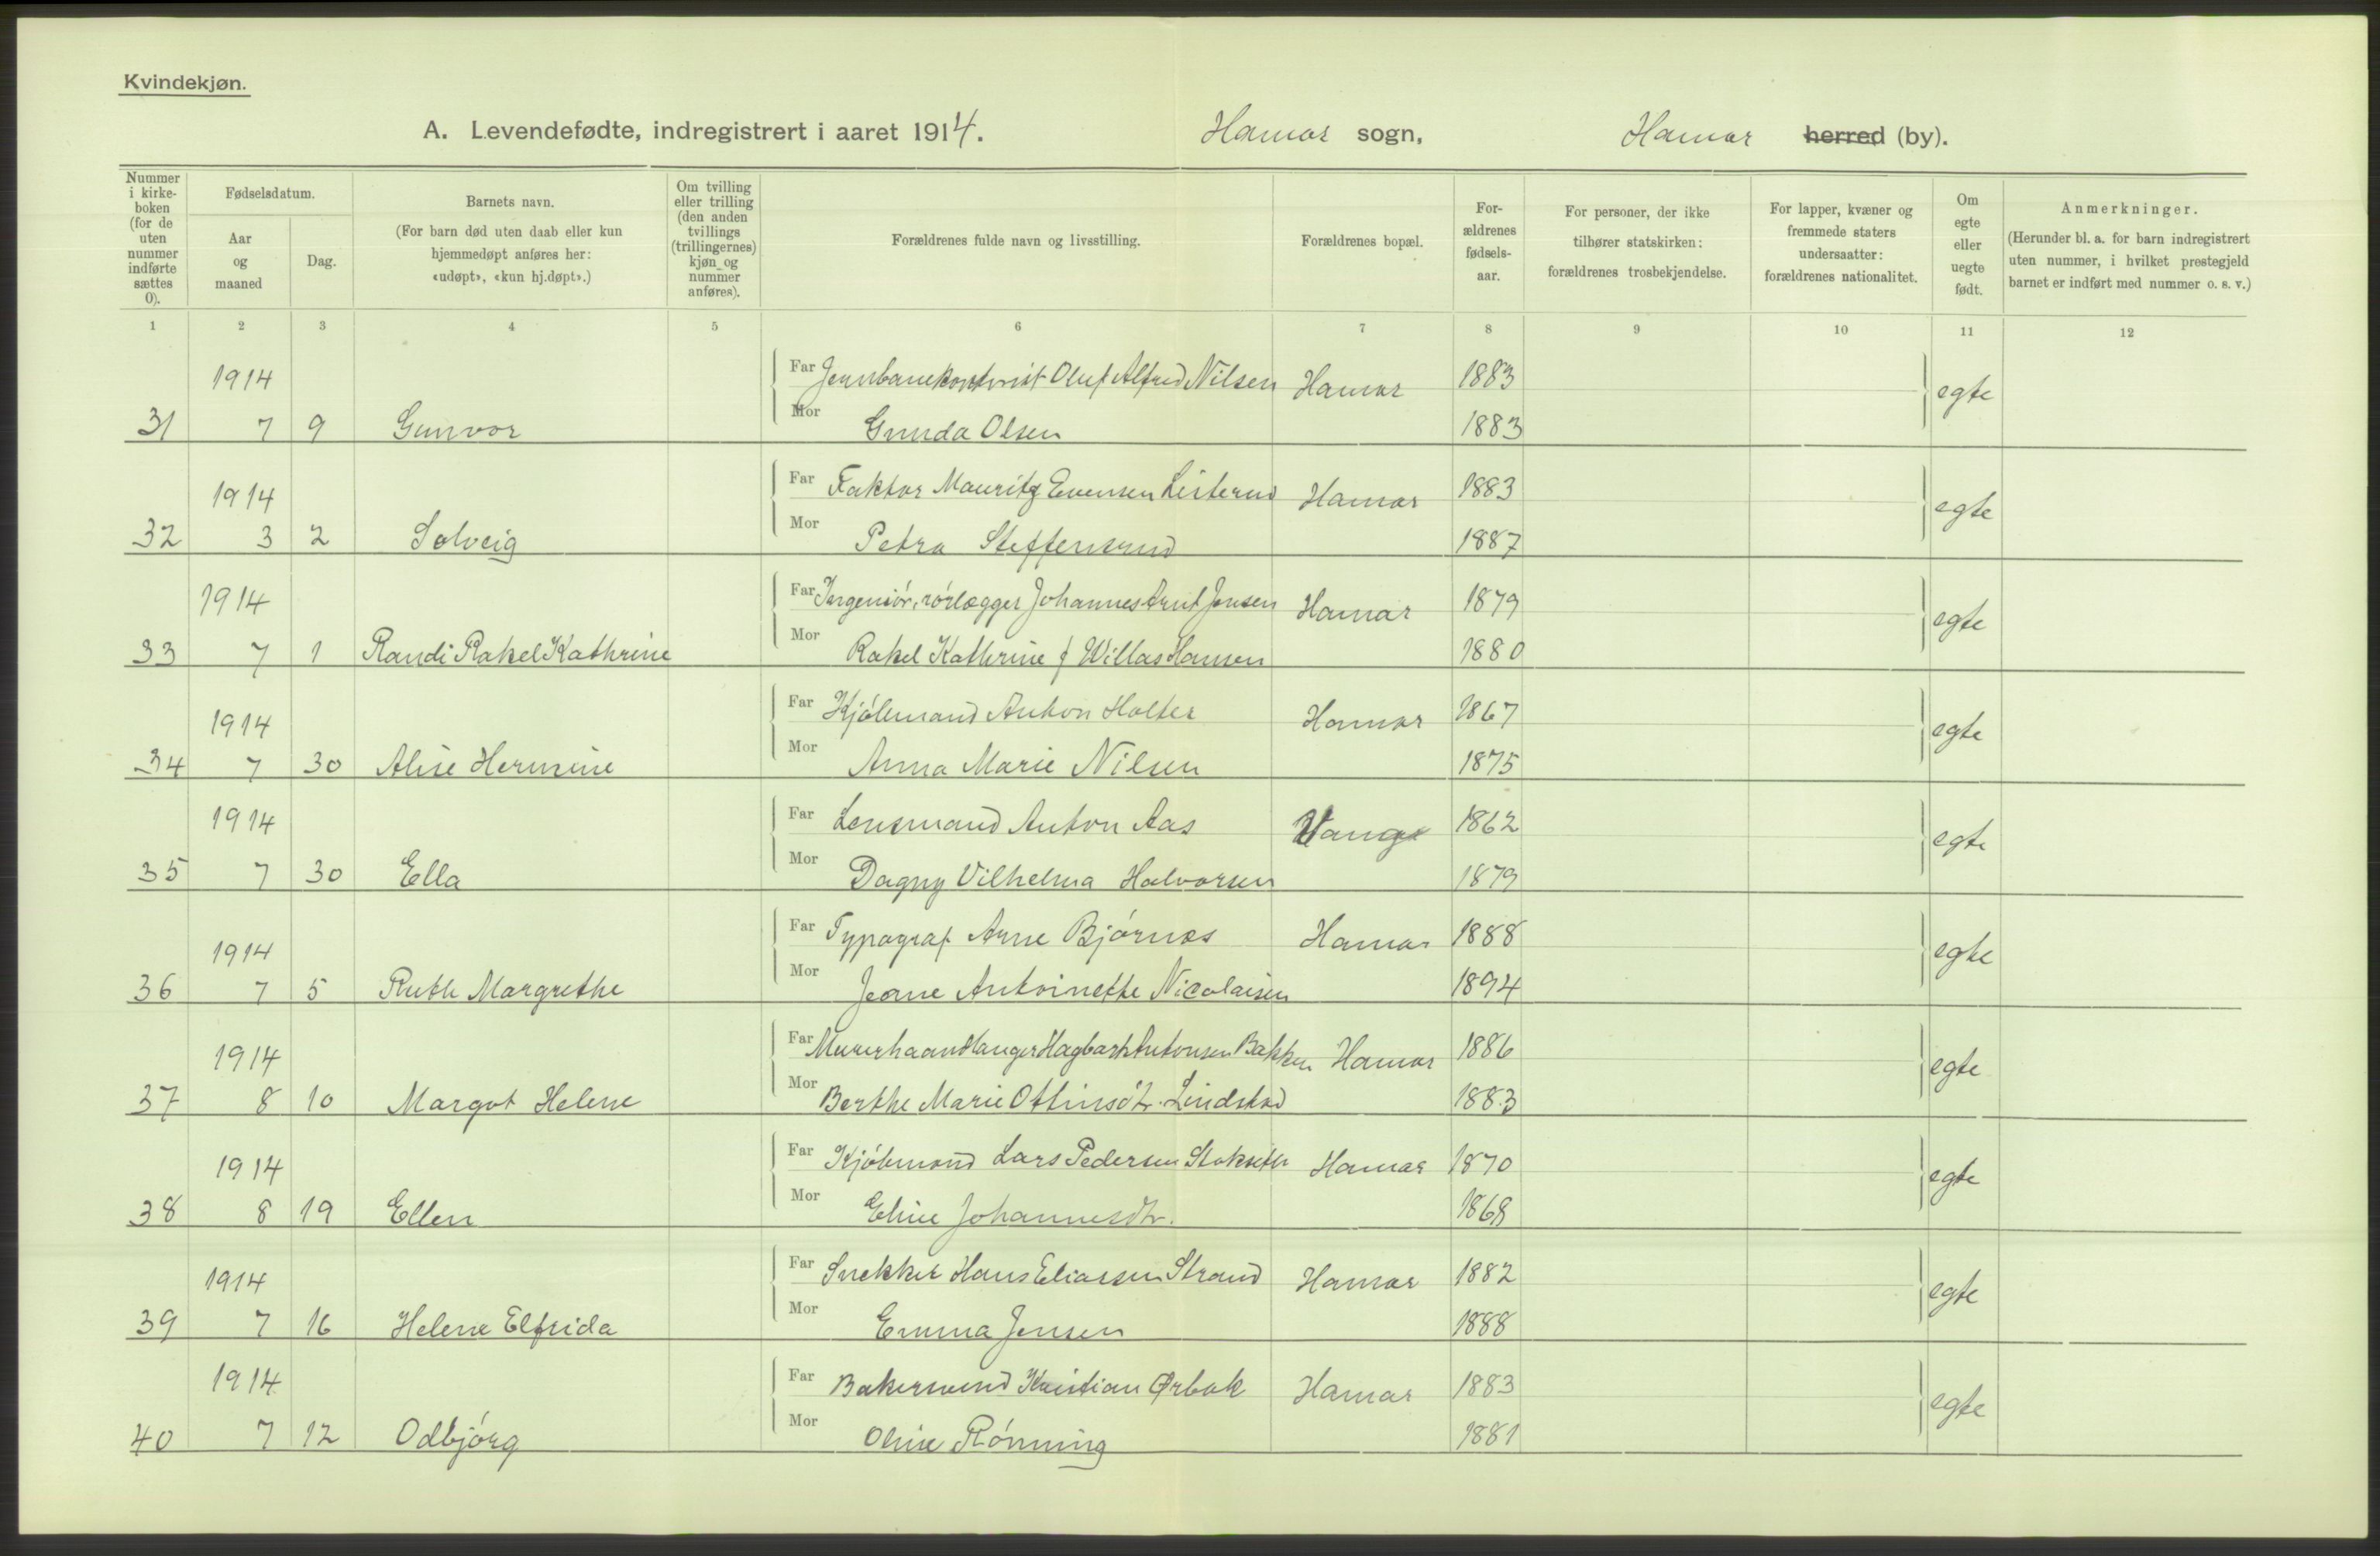 Kvindekjøn.
A. Levendefødte, indregistrert i aaret 1914. Hamar sogn, Hamar herred (by).
Nummer i kirkeboken (for de uten nummer indførte sættes 0). Fødselsdatum. Aar og maaned Dag. Barnets navn. (For barn død uten daab eller kun hjemmedøpt anføres her: «udøpt», «kun hj.døpt».) Om tvilling eller trilling (den anden tvillings (trillingernes) kjøn og nummer anføres). Forældrenes fulde navn og livsstilling. Forældrenes bopæl. Forældrenes fødselsaar. For personer, der ikke tilhører statskirken: forældrenes trosbekjendelse. For lapper, kvæner og fremmede staters undersaatter: forældrenes nationalitet. Om egte eller uegte født. Anmerkninger. (Herunder bl. a. for barn indregistrert uten nummer, i hvilket prestegjeld barnet er indført med nummer o. s. v.)
1 2 3 4 5 6 7 8 9 10 11 12
1914 Far Jernbanekontorist Oluf Alfred Nilsen Hamar 1883 egte
31 7 9 Gunvor Mor Gunda Olsen 1883
1914 Far Faktor Mauritz Evensen Hamar 1883 egte
32 3 2 Solveig Mor Petra Steffensrud 1887
1914 Far Ingeniør, rørlægger Johannes Arnt Jensen Hamar 1879 egte
33 7 1 Randi Rakel Kathrine Mor Rakel Kathrine f Willas Hansen 1880
1914 Far Kjøbmand Anton Holter Hamar 1867 egte
34 7 30 Alise Hermine Mor Anna Marie Nilsen 1875
1914 Far Lensmand Anton Aas Vang 1862 egte
35 7 30 Ella Mor Dagny Vilhelma Halvorsen 1879
1914 Far Typograf Arne Bjørnæs Hamar 1888 egte
36 7 5 Ruth Margrethe Mor Jeane Antoinette Nicolaisen 1894
1914 Far Murerhaandlanger Hagbart Antonsen Bakken Hamar 1886 egte
37 8 10 Margot Helene Mor Berthe Marie Ottinsdtr. Lindstad 1883
1914 Far Kjøbmand Lars Pedersen Stokseth Hamar 1870 egte
38 8 19 Ellen Mor Eline Johannesdtr. 1868
1914 Far Snekker Hans Eliassen Strand Hamar 1882 egte
39 7 16 Helene Elfrida Mor Emma Jensen 1888
1914 Far Bakersvend Kristian Ørbak Hamar 1883 egte
40 7 12 Odbjørg Mor Oline Rønning 1881